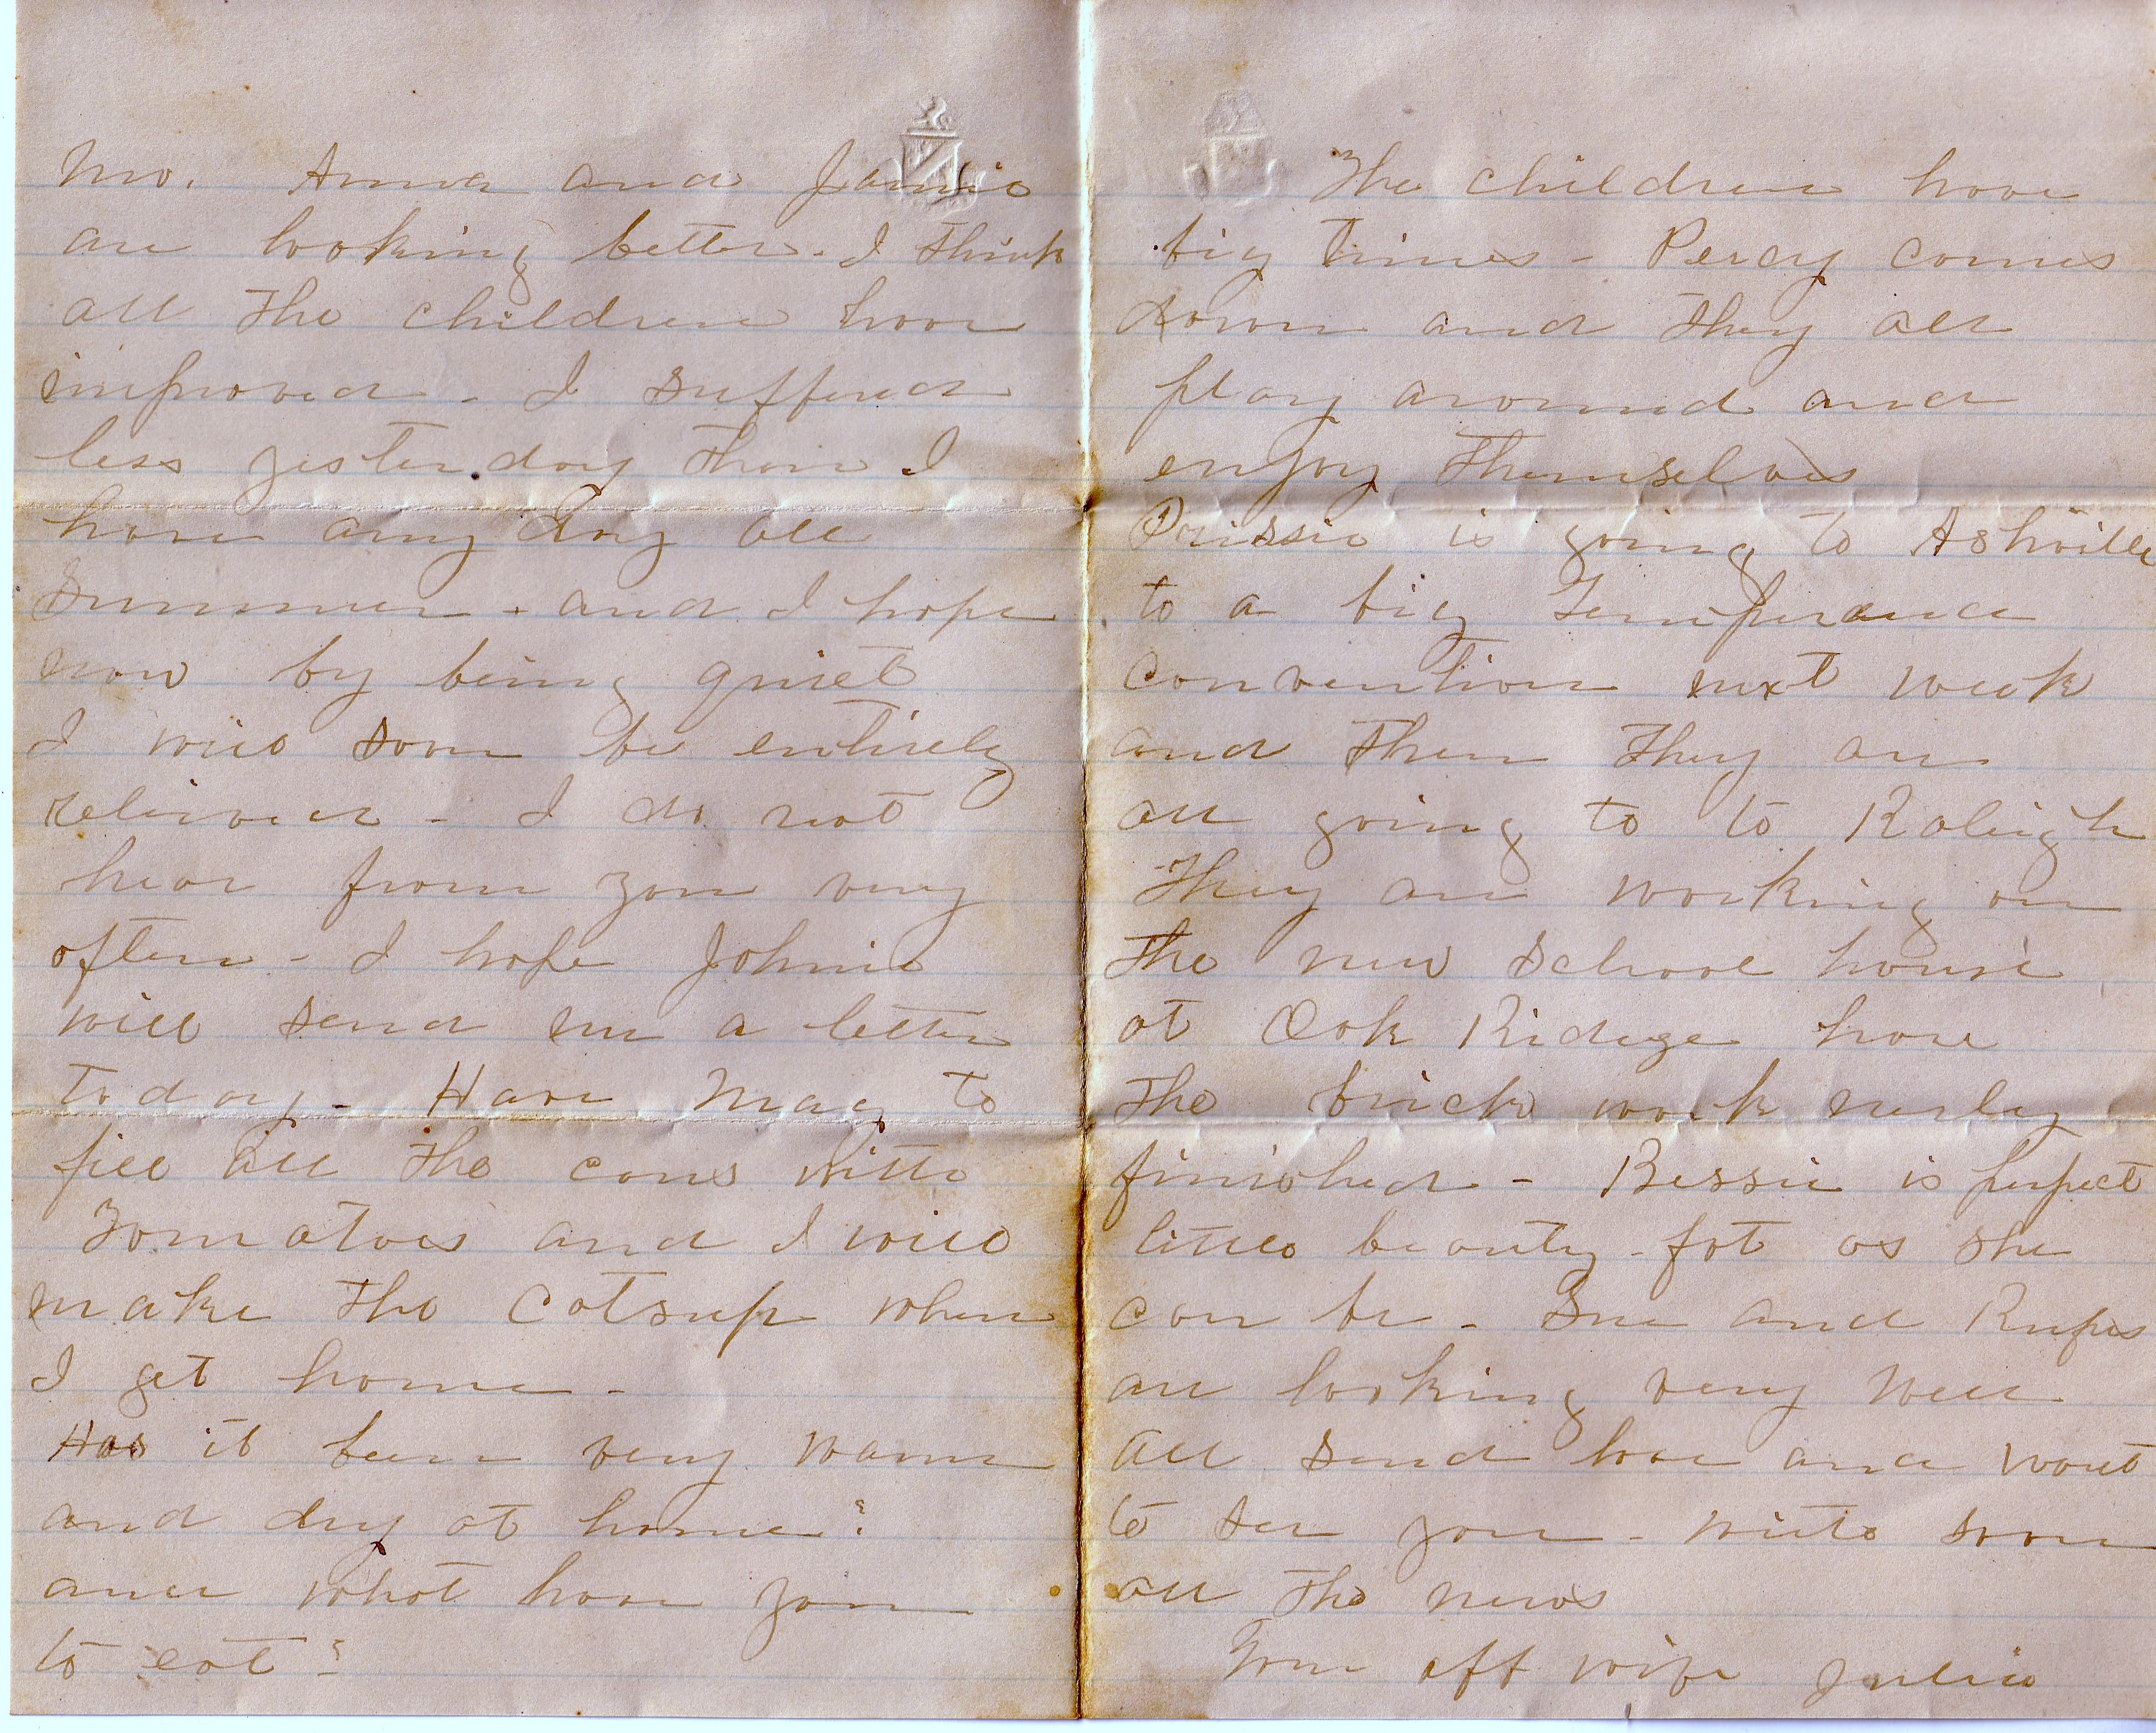 me. Anna and Jamie
are looking better. I think
all the children have
improved - I suffered
less yesterday than I
have any day all
Summer - and I hope
now by being quiet
I will soon be entirely
relieived - I do not
hear from you very
often - I hope Johnie
will send me a letter
today - Have Mag to
fill all the cans with
Tomatoes and I will
make the Catsup when
I get home -
Has it been very warm
and dry at home?
and what have you
to eat?
The children have
big times - Percy comes
down and they all
play around and
enjoy themselves
Prissie is going to Ashville
to a big Temperance
convention next week
and then they are
all going to to Raleigh
They are working on
the new school house
at Oak Ridege have
the brick work nerley
finished - Bessie is perfect
little beauty - fat as she
can be - Sue and Rufus
are looking very well
all send love and want
to see you - write soon
all the news
Your aff wife Julia